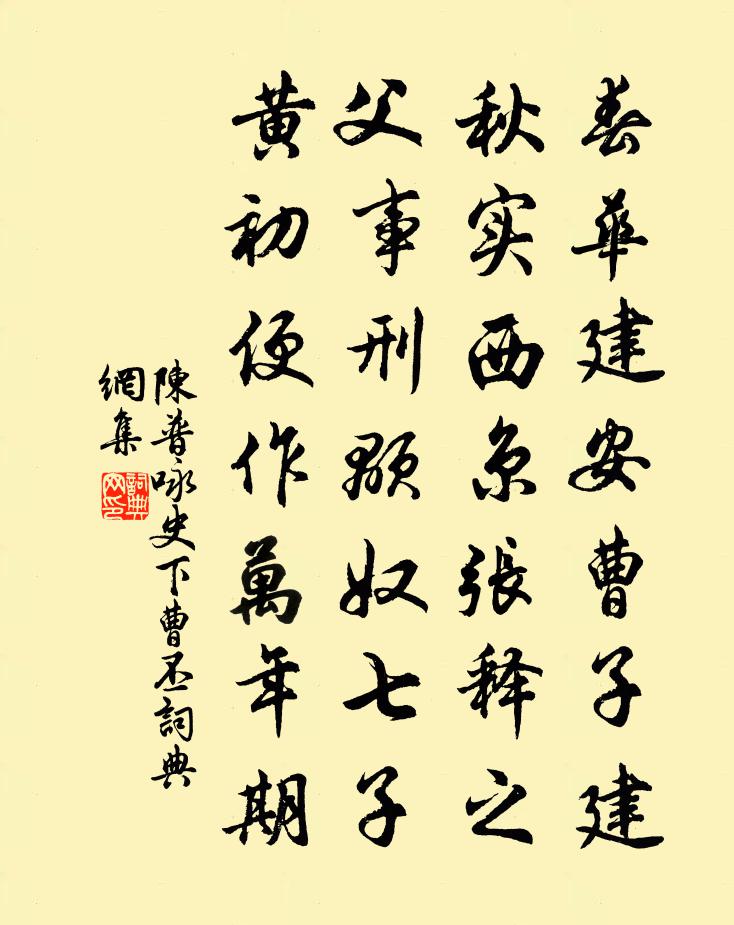 春華建安曹子建
秋实西京張释之
父事刑顒奴七子
黄初便作萬年期
陳普咏史下曹丕詞典
網集
詞典
网印